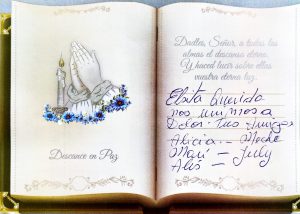 Descanse en Paz
Dadles, Señor, a todas las
almas el descanso eterno.
Y haced lucir sobre ellas
vuestra eterna luz.
Elsita Querida
nos unimos a
Dolor. Tus Amigas
Alicia – Meche
Mari – Judy
Alis –